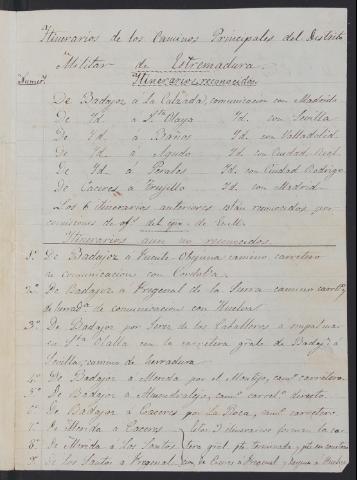 Itinerarios de los Caminos Principales del Distrito
Militar de Estremadura.
"Numero" Itinerarios reconocidos
De Badajoz á La Calzada, comunicacion con Madrid
De Id. á Sta Olaya Id. con Sevilla
De Id. á Baños Id. con Valladolid
De Id. á Agudo Id. con Ciudad Real
De Id. á Perales Id. con Ciudad Rodrigo
De Caceres á Trujillo Id. con Madrid
Los 6 itinerarios anteriores están reconocidos por
comisiones de ofs. del cpo. de E.M.
Itinerarios aun no reconocidos
1º De Badajoz á Fuente Obejuna camino carretero
de comunicacion con Cordoba.
2º De Badajoz á Fregenal de la Sierra camino
de herrada. de comunicacion con Huelva
3º De Badajoz por Jerez de los Caballeros á empalmar
en Sta Olalla con la carretera gral. de Badajz. á
Sevilla, camino de herradura
4º De Badajoz á Merida por el Montijo, camº carretero.
5º De Badajoz á Almendralejo, camº carrº directo.
6º De Badajoz á Caceres por La Roca, camº carretero.
7º De Merida á Caceres estos 3 itinerarios forman la ca-
8º De Merida á los Santos tera gral. pte. terminada, y pte. en construn.
9º De los Santos á Fregenal de Caceres á Fregenal, y sigue á Huelva